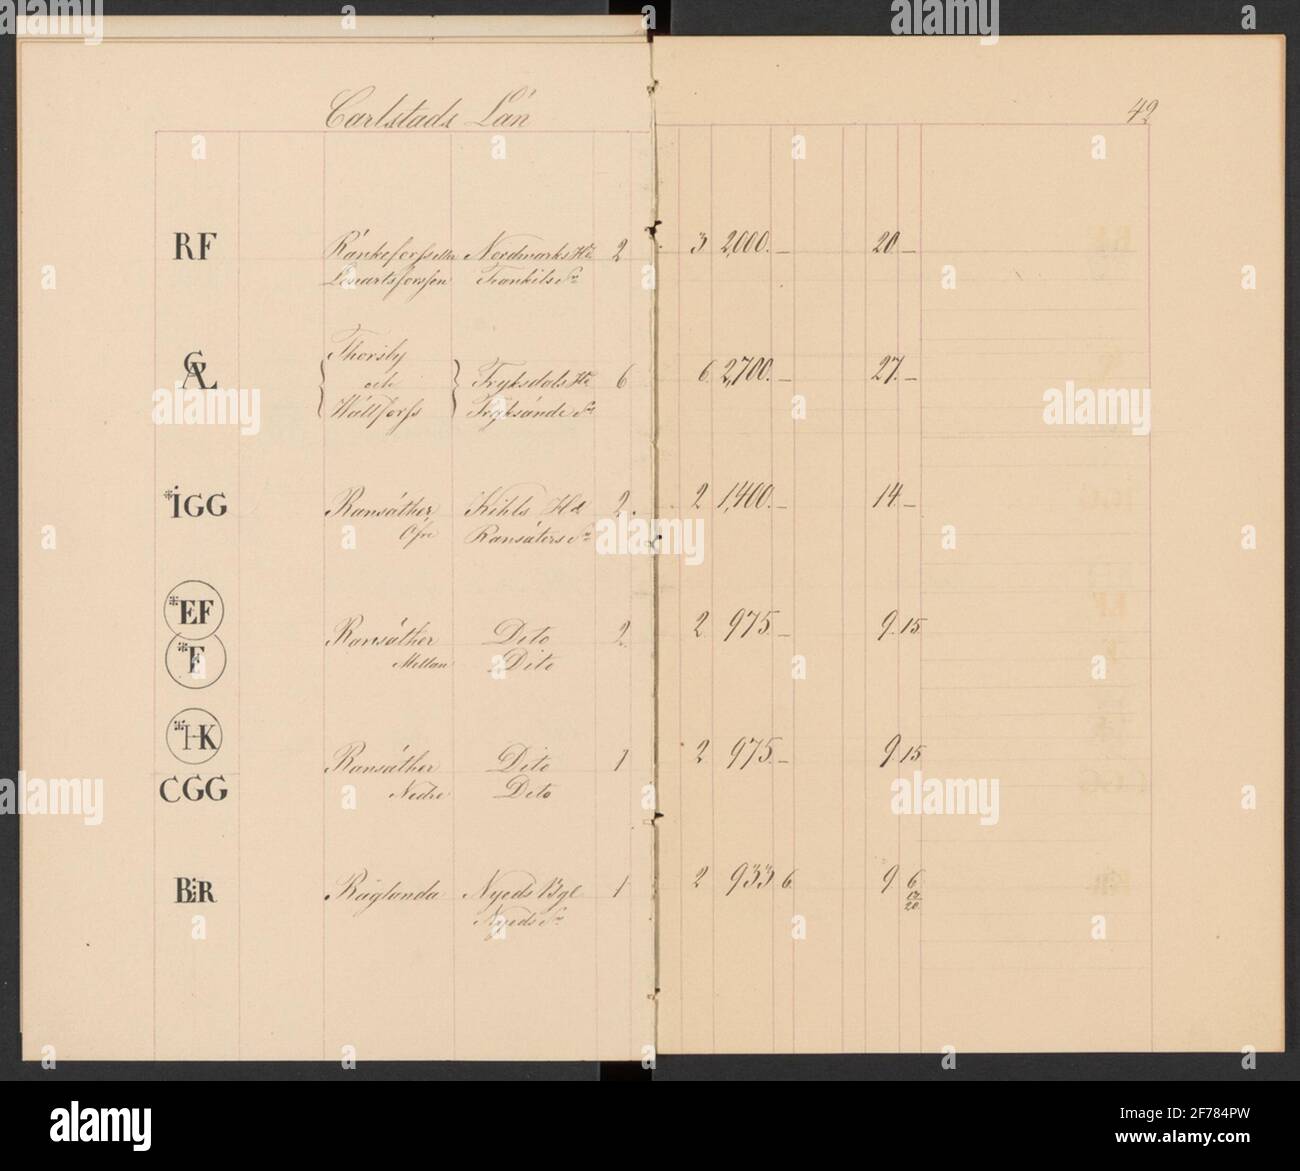 Carlstads Län
42
RF Rånkeforss eller Nordmarks Hd 2 3 2,000. — 20. —
Lenartsforssen Trankils Sn
GAL Thorsby
och Fryksdals Hd 6 6 2,700. — 27. —
Wåttforss Fryksände Sn
*IGG Ransäther Kihls Hd 2. 2 1,400. — 14. —
Öfre Ransäters Sn
*EF Ransäther Dito 2. 2 975. — 9. 15
*F Mellan Dito
*HK Ransäther Dito 1 2 975. — 9. 15
CGG Nedre Dito
BLR Råglanda Nyeds Bgl 1 2 933 6. 9 6
Nyeds Sn 20
alamy
Image ID: 2F784PW
www.alamy.com